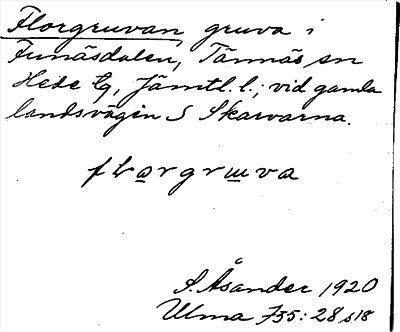 Florgruvan, gruva i
Funäsdalen, Tännäs sn
Hede tg, Jämtl. l.; vid gamla
landsvägen S Skarvarna.
florgruva
S. Åsander 1920
Ulma 755: 28 s 18